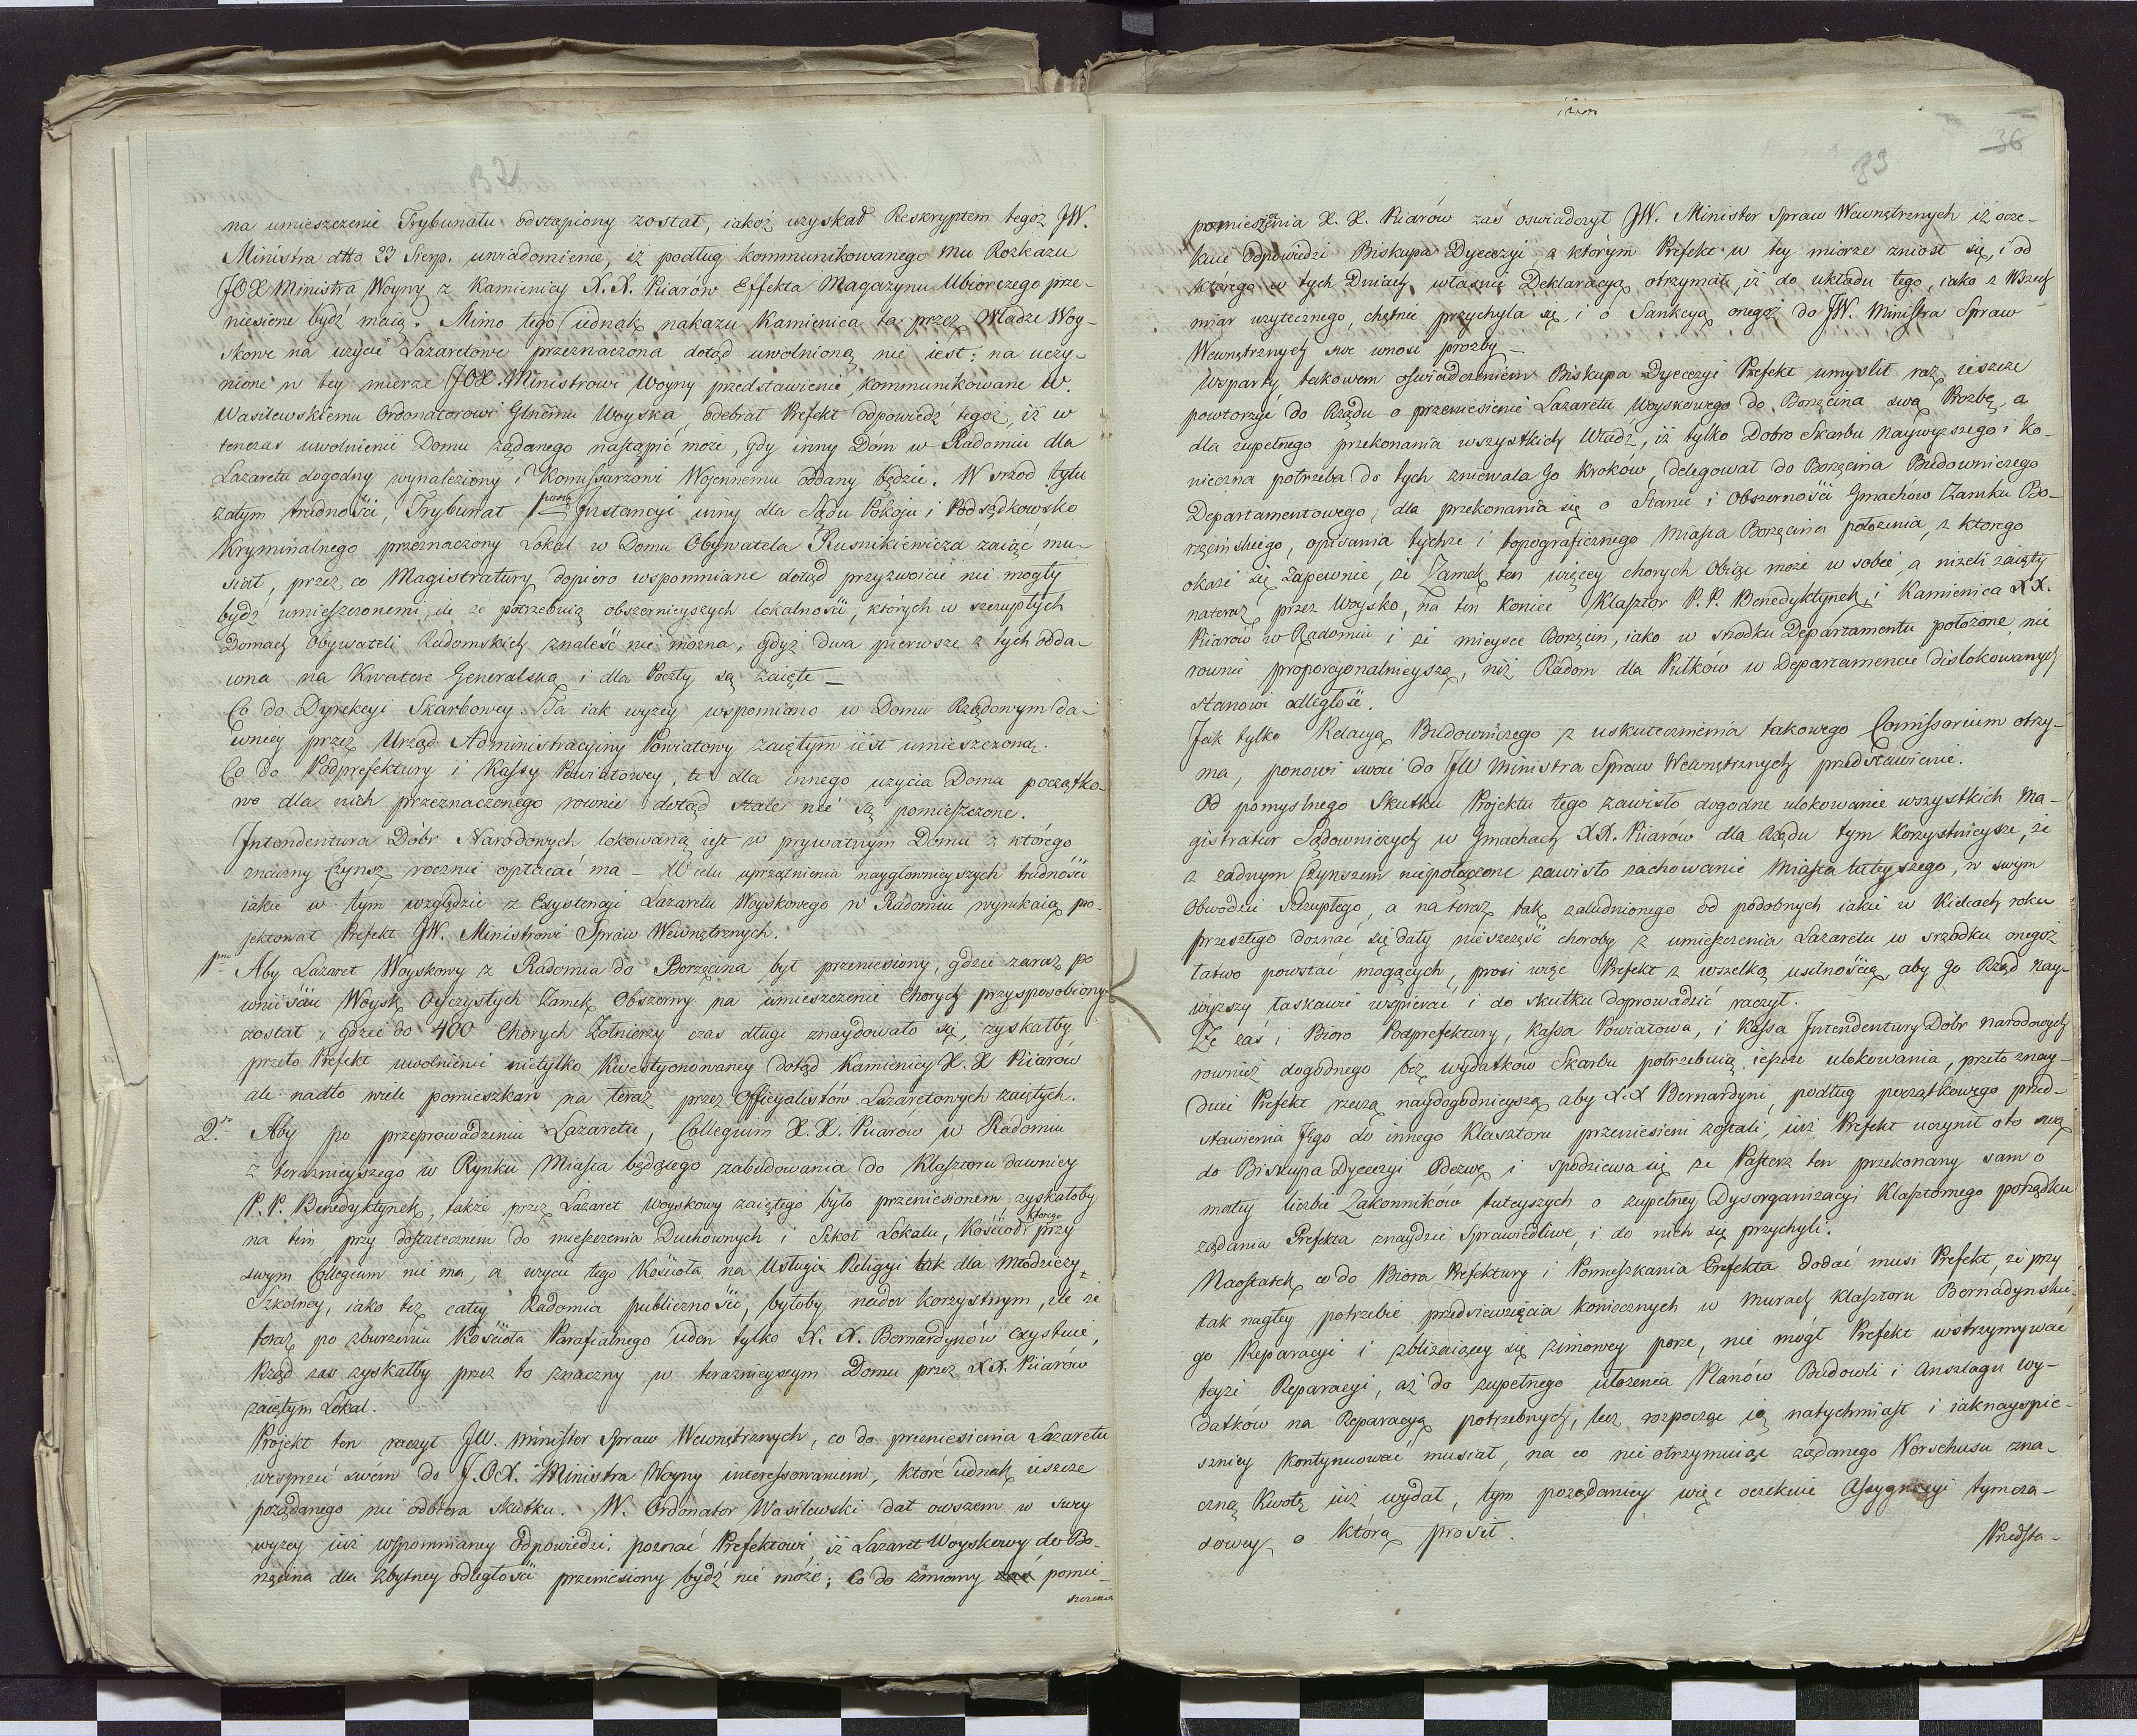 32
na umieszczenie Trybunału odstąpiony został, iakoż uzyskał Reskryptem tegoż JW.
Ministra dtto 23 Sierp. uwiadomienie, iż podług kommunikowanego mu Rozkazu
JOX Ministra Woyny z Kamienicy X.X. Piiarów Effekta Magazynu Ubiorczego prze-
niesione bydź maią. Mimo tego iednak nakazu Kamienica ta przez Władze Woy-
skowe na użycie Lazaretowe przeznaczona dotąd uwolnioną nie iest; na uczy-
nione w tey mierze JOX. Ministrowi Woyny przedstawienie, kommunikowane W.
Wasilewskiemu Ordonatorowi Glnemu Woyska, odebrał Prefekt odpowiedź tegoż, iż w
tenczas uwolnienie Domu żądanego nastąpić może, gdy inny Dom w Radomiu dla
Lazaretu dogodny wynaleziony i Komissarzowi Wojennemu oddany będzie. W śrzod tylu
zatym trudności, Trybunał 1wszej Instancyi inny dla Sądu Pokoju i Podsędkowsko
Kryminalnego przeznaczony Lokal w Domu Obywatela Rusnikiewicza zaiąć mu-
siał, przez co Magistratury dopiero wspomniane dotąd przyzwoicie nie mogły
bydź umieszczonemi, ile że potrzebuią obszernieyszych lokalności, których w szczupłych
Domach Obywateli Radomskich znaleść nie można, gdyż dwa pierwsze z tych odda-
wna na Kwaterę Generalską i dla Poczty są zaięte —
Co do Dyrekcyi Skarbowey. Ta iak wyżey wspomiano w Domu Rządowym da-
wniey przez Urząd Administracyiny Powiatowy zaiętym iest umieszczoną.
Co do Podprefektury i Kassy Powiatowey, te dla innego użycia Domu początko-
wo dla nich przeznaczonego rownie dotąd stale nie są pomieszczone.
Intendentura Dóbr Narodowych lokowaną iest w prywatnym Domu z którego
znaczny Czynsz rocznie opłacać ma — W celu uprzątnienia naygłownieyszych trudności
iakie w tym względzie z Exystencyi Lazaretu Woyskowego w Radomiu wynikaią pro-
jektował Prefekt JW. Ministrowi Spraw Wewnętrznych.
1mo Aby Lazaret Woyskowy z Radomia do Borzęcina był przeniesiony, gdzie zaraz po
wnisciu Woysk Oyczystych Zamek Obszerny na umieszczenie Chorych przysposobiony
został, gdzie do 400 Chorych Żołnierzy czas długi znaydowało się, zyskałby
przeto Prefekt uwolnienie nietylko Kwestyonowaney dotąd Kamienicy X.X Piiarów
ale nadto wiele pomieszkań na teraz przez Officyalistów Lazaretowych zaiętych.
2re Aby po przeprowadzeniu Lazaretu, Collegium X.X. Piiarów w Radomiu
z teraznieyszego w Rynku Miasta będącego zabudowania do Klasztoru dawniey
P.P. Benedyktynek, także przez Lazaret woyskowy zaiętego było przeniesionem, zyskałoby
na tem przy dostatecznem do mieszczenia Duchownych i Szkoł Lokalu, Kościoł ktorego przy
swym Collegium nie ma, a użycie tego Kościoła na Usługi Religyi tak dla Młodzieży
Szkolney, iako też całey Radomia publiczności, byłoby nader korzystnym, ile że
teraz po zburzeniu Kościoła Parafialnego ieden tylko X.X. Bernardynów exystuie,
Rząd zas zyskałby przez to znaczny w teraznieyszym Domu przez XX. Piiarów
zaiętym Lokal.
Projekt ten raczył JW. Minister Spraw Wewnętrznych, co do przeniesienia Lazaretu
wesprzeć swém do J.O.X. Ministra Woyny interessowaniem, które iednak ieszcze
pożądanego nie odbiera skutku. W. Ordonator Wasilewski dał owszem w swey
wyżey iuż wspomnianey Odpowiedzi, poznać Prefektowi iż Lazaret Woyskowy do Bo-
rzęcina dla zbytney odległości przeniesiony bydź nie może; Co do zmiany zaś pomie-
szczenia
36
33
pomieszczenia X.X. Piiarów zaś oswiadczył JW. Minister Spraw Wewnętrznych iż ocze-
kuie Odpowiedzi Biskupa Dyecezyi z którym Prefekt w tey mierze zniosł się, i od
którego w tych Dniach własnie Deklaracyą otrzymał, iż do układu tego, iako z Wszech
miar użytecznego, chętnie przychyla się, i o Sankcyą onegoż do JW. Ministra Spraw
Wewnętrznych swe wnosi prozby —
Wsparty takowem oświadczeniem Biskupa Dyecezyi Prefekt umyslił raz ieszcze
powtorzyć do Rządu o przeniesienie Lazaretu Woyskowego do Borzęcina swą Prozbę, a
dla zupełnego przekonania wszystkich Władz, iż tylko Dobro Skarbu Naywyższego i ko-
nieczna potrzeba do tych zniewala Go kroków, delegował do Borzęcina Budowniczego
Departamentowego, dla przekonania się o Stanie i Obszerności Gmachów Zamku Bo-
rzęcińskiego, opisania tychże i topograficznego Miasta Borzęcina położenia, z ktorego
okaże się zapewnie, że Zamek ten więcey chorych Obiąć może w sobie, a niżeli zaięty
nateraz przez Woysko, na ten koniec Klasztor P.P. Benedyktynek, i Kamienica XX.
Piiarów w Radomiu i że mieysce Borzęcin, iako w srodku Departamentu położone, nie
rownie proporcyonalnieyszą, niż Radom dla Pułków w Departamencie dislokowanych
stanowi odległość.
Jak tylko Relacyą Budowniczego z uskutecznienia takowego Comissorium otrzy-
ma, ponowi swoie do JW Ministra Spraw Wewnętrznych przedstawienie.
Od pomyslnego Skutku Projektu tego zawisło dogodne ulokowanie wszystkich Ma-
gistratur Sądowniczych w Gmachach XX. Piiarów dla Rządu tym korzystnieysze, że
z żadnym Czynszem niepołączone zawisło zachowanie Miasta tuteyszego, w swym
Obwodzie szczupłego, a na teraz tak zaludnionego od podobnych iakie w Kielcach roku
przeszłego doznać się dały nieszczęść choroby z umieszczenia Lazaretu w srzodku onegoż
łatwo powstać mogących, prosi więc Prefekt z wszelką usilnością, aby go Rząd Nay-
wyższy łaskawie wspierać i do skutku doprowadzić raczył.
Że zaś i Bioro Podprefektury, Kassa Powiatowa, i Kassa Intendentury Dobr Narodowych
rownież dogodnego bez wydatków Skarbu potrzebuią ieszcze ulokowania, przeto znay-
duie Prefekt rzeczą naydogodnieyszą aby X.X Bernardyni, podług początkowego przed-
stawienia Jego do innego Klasztoru przeniesieni zostali, iuż Prefekt uczynił oto swą
do Biskupa Dyecezyi Odezwę i spodziewa się że Pasterz ten przekonany sam o
małey liczbie Zakonników tuteyszych o zupełney Dysorganizacyi Klasztornego porządku
żądania Prefekta znaydzie Sprawiedliwe, i do nich się przychyli.
Naostatek co do Biora Prefektury i Pomieszkania Prefekta dodać musi Prefekt, że przy
tak nagłey potrzebie przedsiewzięcia koniecznych w murach klasztoru Bernadynskie-
go Reparacyi i zbliżaiącey się zimowey porze, nie mógł Prefekt wstrzymywać
teyże Reparacyi, aż do zupełnego ułożenia Planów Budowli i Anszlagu wy-
datków na Reparacyą potrzebnych, lecz rozpocząć ią natychmiast i iaknayspie-
szniey kontynuować musiał, na co nie otrzymuiąc żądanego Vorschusu zna-
czną Kwotę iuż wydał, tym pożądaniey więc oczekuie Assygnacyi tymcza-
sowey, o którą prosił.
Przedsta-